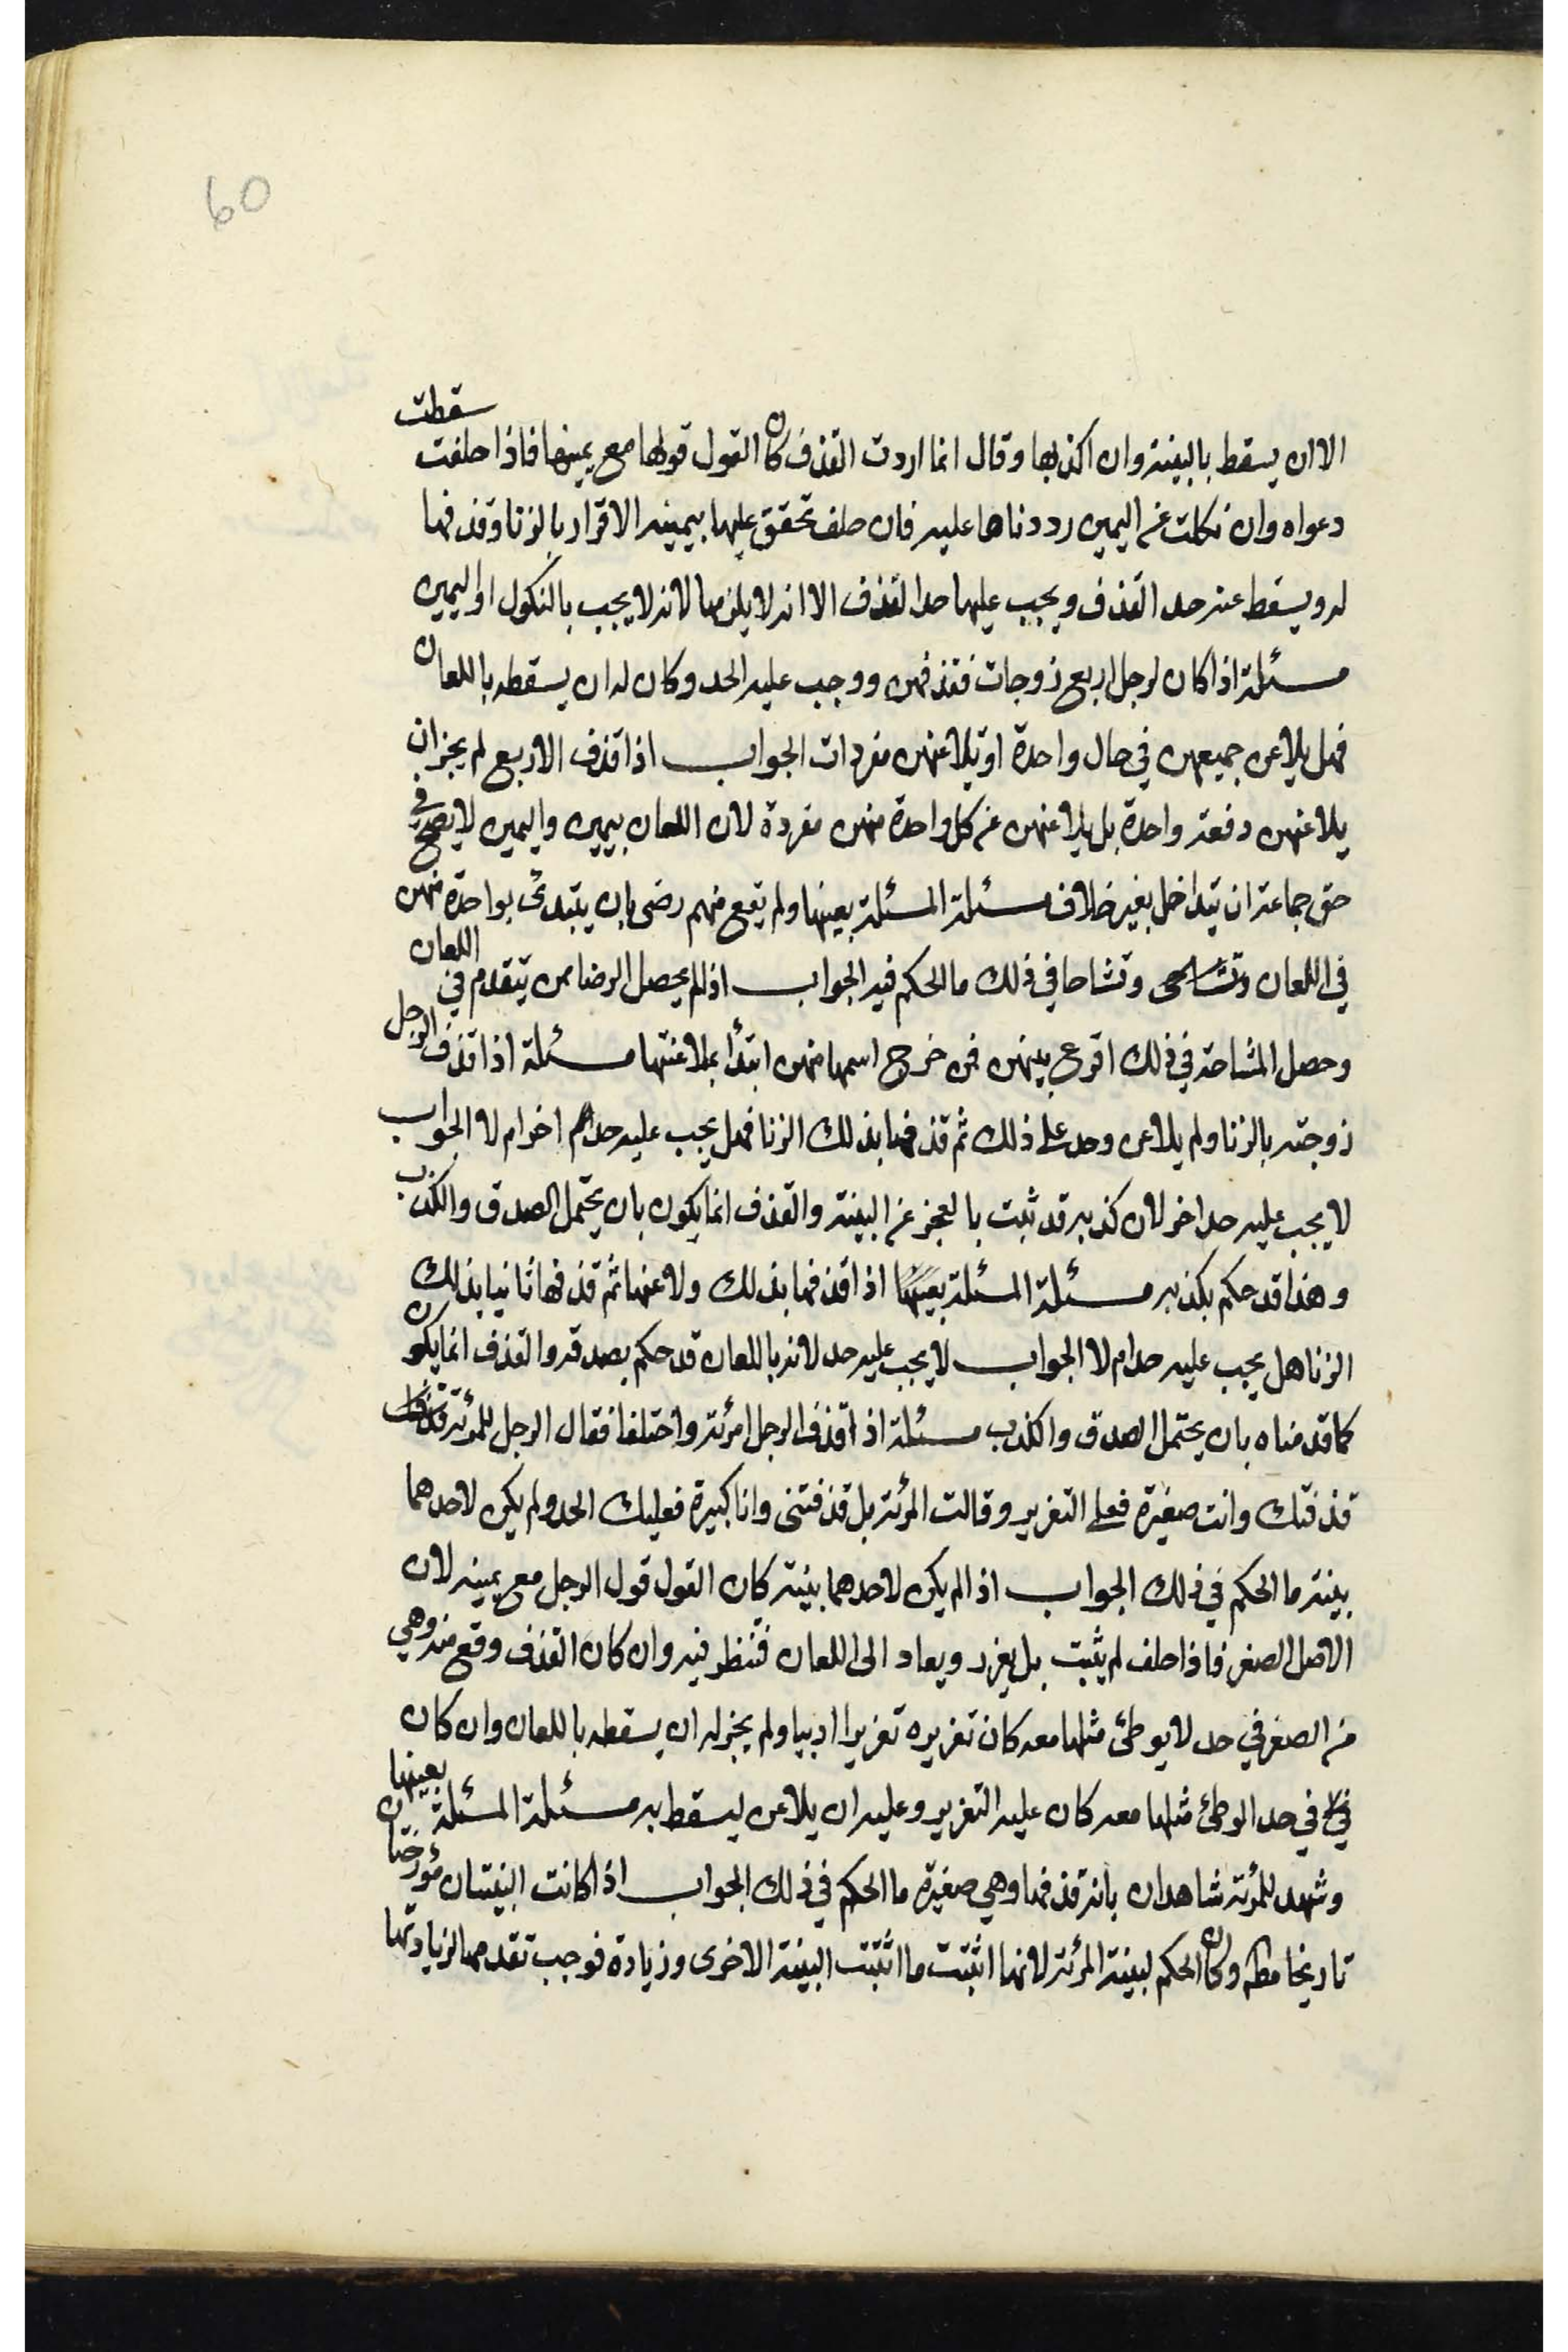 60
الا ان يسقط بالبينة وان اكذبها وقال انما اردت القذف كان القول قولها مع يمينها فاذا حلفت سقطت
دعواه وان نكلت عن اليمين رددناها عليه فان حلف تحقق عليها بيمينه الاقرار بالزنا وقذفها
له ويسقط عنه حد القذف ويجب عليها حد القذف الا انه لا يلزمها لانه لا يجب بالنكول او اليمين
مسئلة اذا كان لرجل اربع زوجات فقذفهن ووجب عليه الحد وكان له ان يسقطه باللعان
فهل يلاعن جميعهن في حال واحدة او تلاعنهن مفردات الجواب اذا قذف الاربع لم يجز ان
يلاعنهن دفعة واحدة بل يلاعنهن عن كل واحدة منهن مفردة لان اللعان يمين واليمين لا يصح في
حق جماعة ان يتداخل بغير خلاف مسئلة المسئلة بعينها ولم يقع منهم رضى بان يبتدئ بواحدة منهن
في اللعان وتشاحا في ذلك ما الحكم فيه الجواب اذا لم يحصل الرضا بمن يتقدم في اللعان
وحصل المشاحة في ذلك اقرع بينهن فمن خرج اسمها منهن ابتدأ بملاعنتها مسئلة اذا قذف الرجل
زوجته بالزنا ولم يلاعن وحد على ذلك ثم قذفها بذلك الزنا فهل يجب عليه حد اخر ام لا الجواب
لا يجب عليه حد اخر لان كذبه قد ثبت بالعجز عن البينة والقذف انما يكون بان يحتمل الصدق والكذب
وهذا قد حكم بكذبه مسئلة المسئلة بعينها اذا قذفها بذلك ولاعنها ثم قذفها ثانيا بذلك
الزنا هل يجب عليه حد ام لا الجواب لا يجب عليه حد لانه باللعان قد حكم بصدقه والقذف انما يكون
كما قدمناه بان يحتمل الصدق والكذب مسئلة اذا قذف الرجل امرئته واختلفا فقال الرجل للمرئة
قذفتك وانت صغيرة فعلي التعزير وقالت المرئة بل قذفتنى وانا كبيرة فعليك الحد ولم يكن لاحدهما
بينة ما الحكم في ذلك الجواب اذا لم يكن لاحدهما بينة كان القول قول الرجل مع يمينه لان
الاصل الصغر فاذا حلف لم يثبت بل يعزر ويعاد الى اللعان فننظر فيه وان كان القذف وقع منه وهي
من الصغر في حد لا يوطئ مثلها معه كان تعزيره تعزيرا ادبيا ولم يجز له ان يسقطه باللعان وان كان
في حد الوطئ مثلها معه كان عليه التعزير وعليه ان يلاعن ليسقط به مسئلة المسئلة بعينها
وشهد للمرئة شاهدان بانه قذفها وهي صغيرة ما الحكم في ذلك الجواب اذا كانت البينتان مؤرختان
تاريخا وكان الحكم لبينة المرئة لانها اثبتت ما اثبتت البينة الاخرى وزيادة فوجب تقدمها لزيادتها